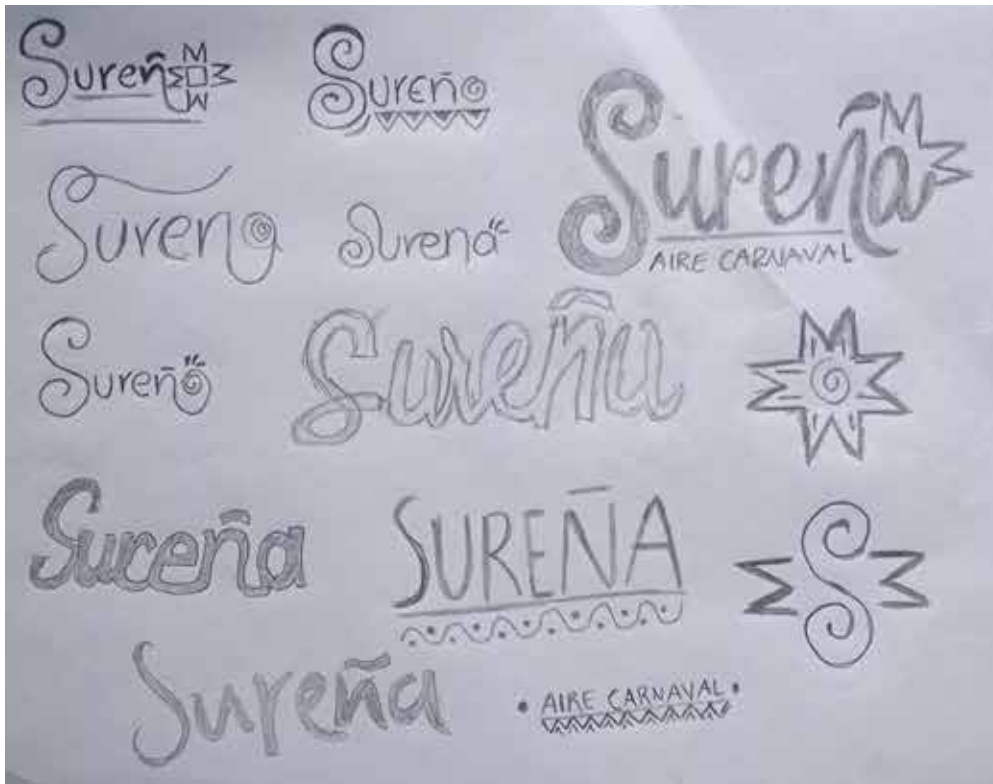 Sureñ
Sureño
Sureña
AIRE CARNAVAL
Sureno
Surena
Sureño
Sureña
Sureña
SUREÑA
S
Sureña
• AIRE CARNAVAL •